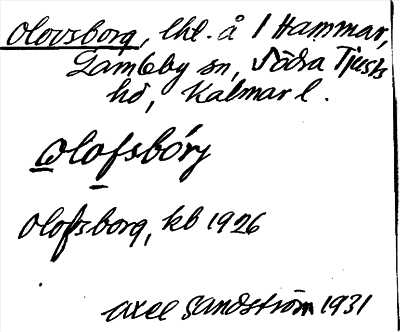 Olovsborg, lhl. å 1 Hammar,
Gamleby sn, Södra Tjusts
hd, Kalmar l.
olofsbórj
Olofsborg, kb 1926
Axel Sandström 1931